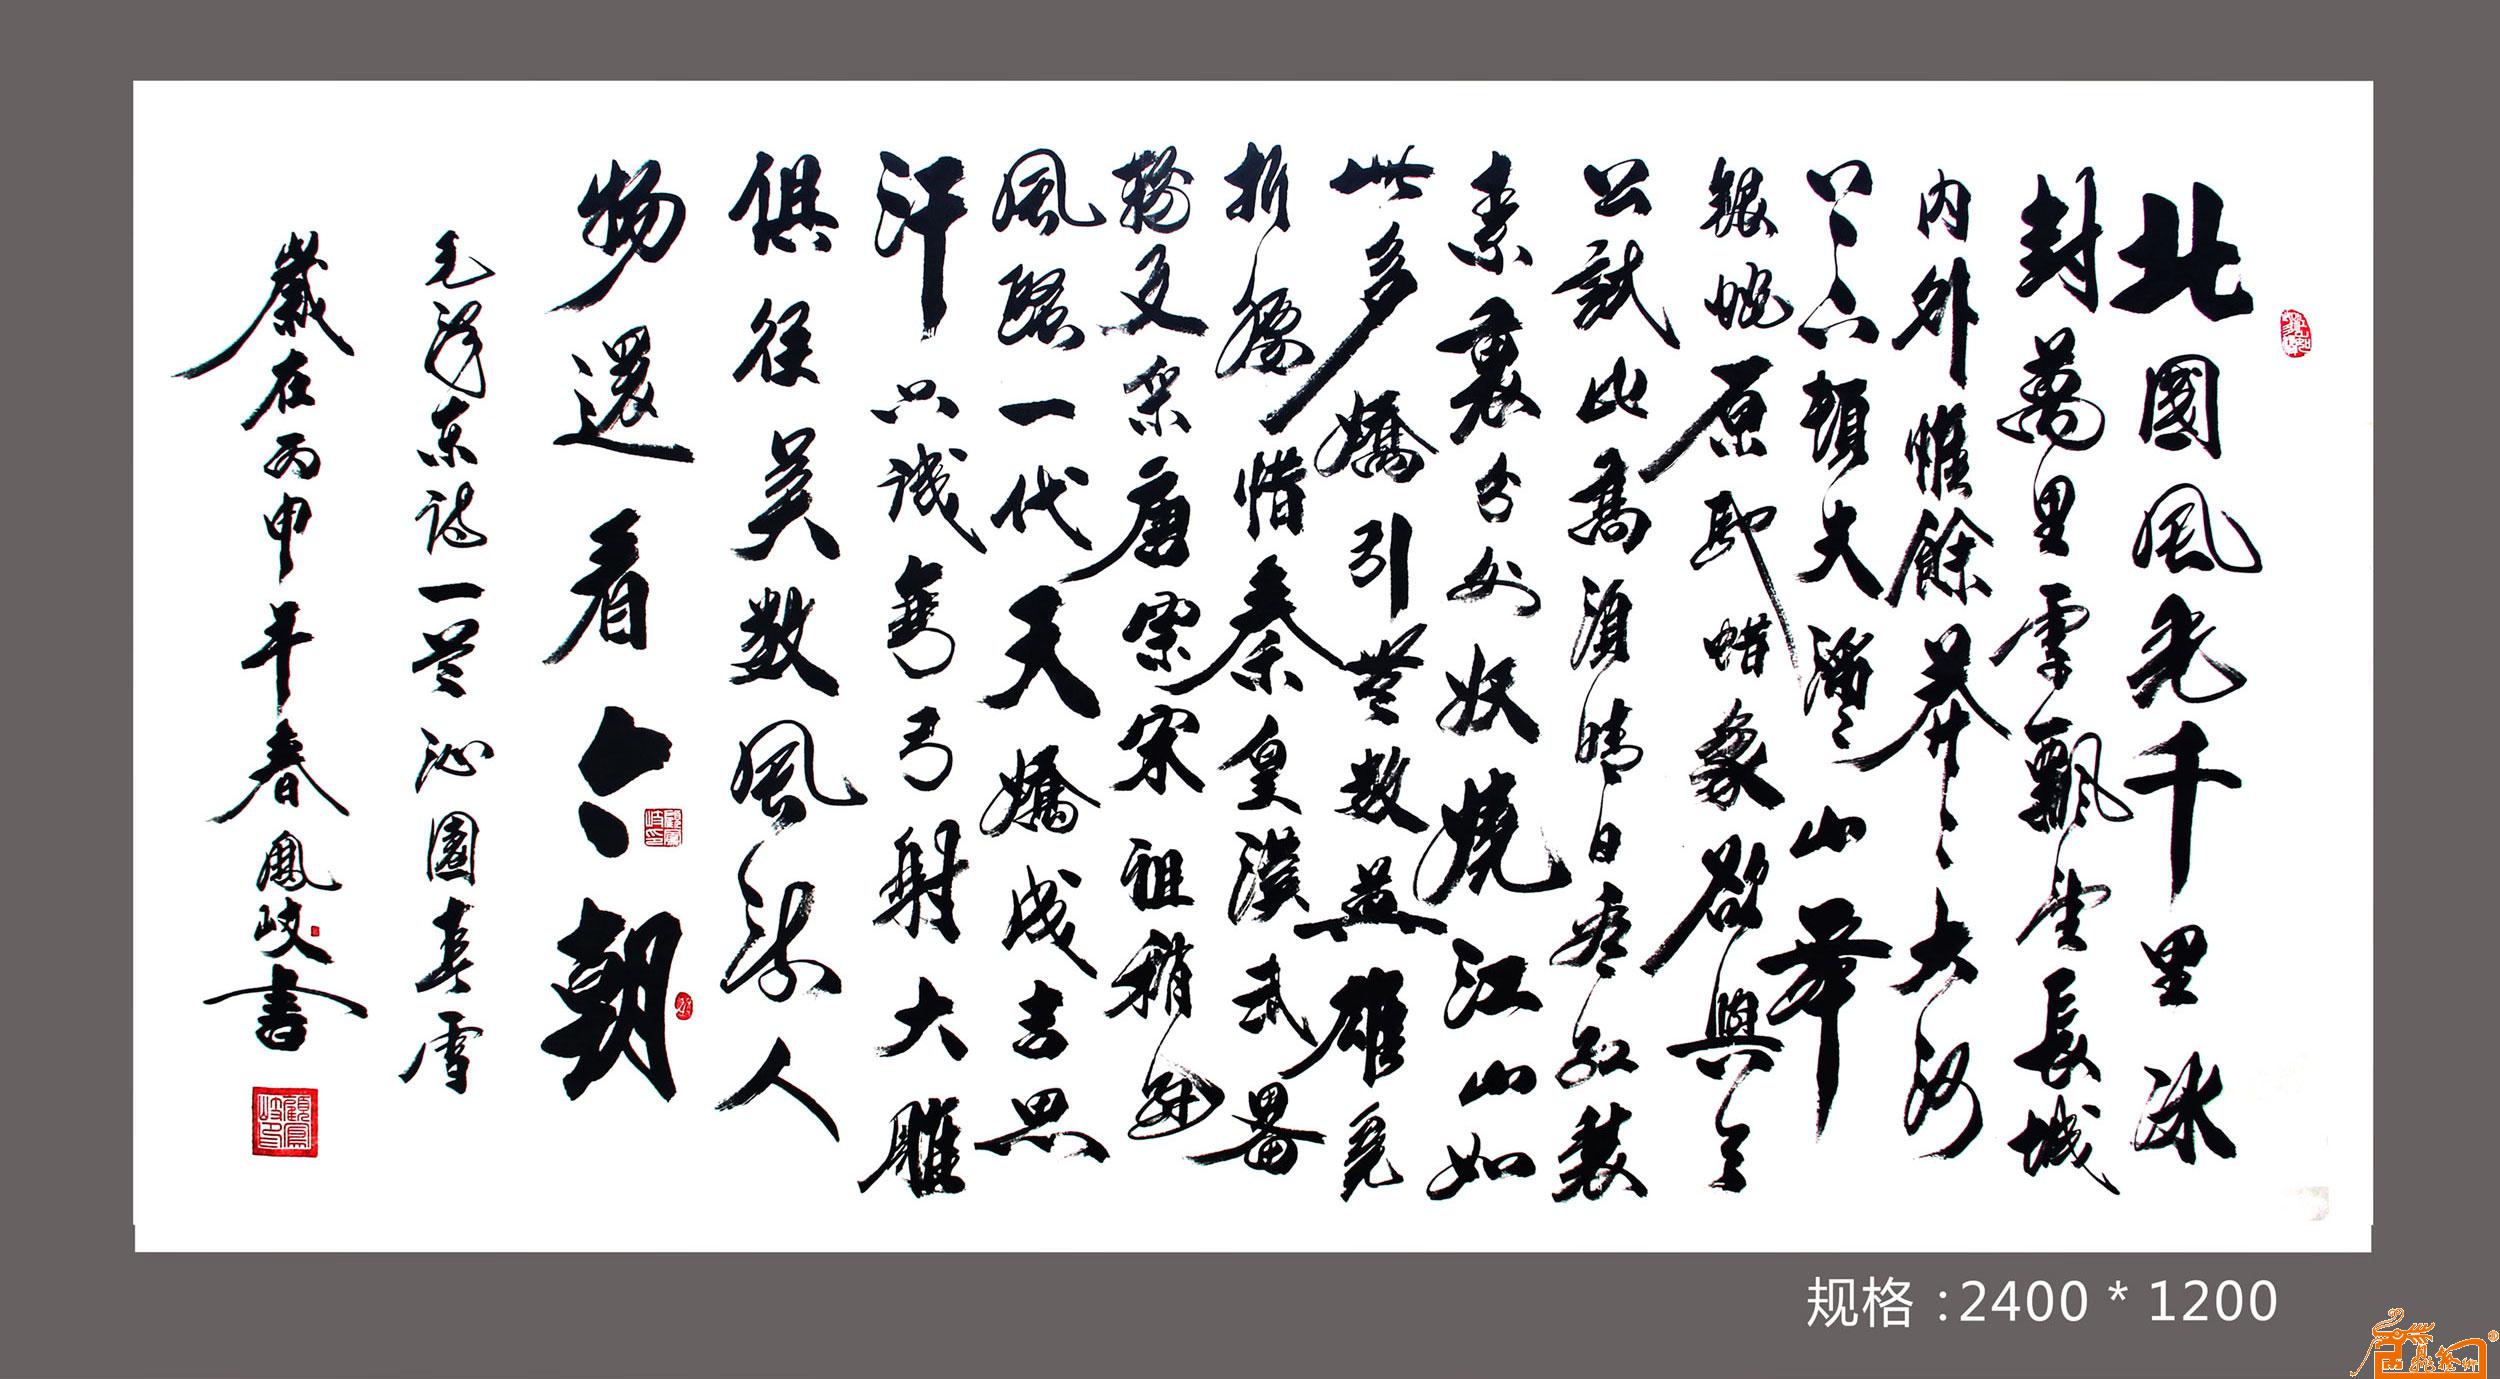 北國風光千里冰
封萬里雪飄望長城
内外惟餘莽〻大河
上下頓失滔〻山舞
銀蛇原馳蜡象欲與天
公試比高須晴日看紅裝
素裹分外妖嬈江山如
此多嬌引無數英雄競
折腰惜秦皇漢武畧
輸文采唐宗宋祖稍遜
風騷一代天嬌成吉思
汗只識彎弓射大雕
俱往矣數風流人
物還看今朝
毛澤東詞一首沁園春雪
歲在丙申年春鳳岐書
顧鳳岐印
规格:2400*1200